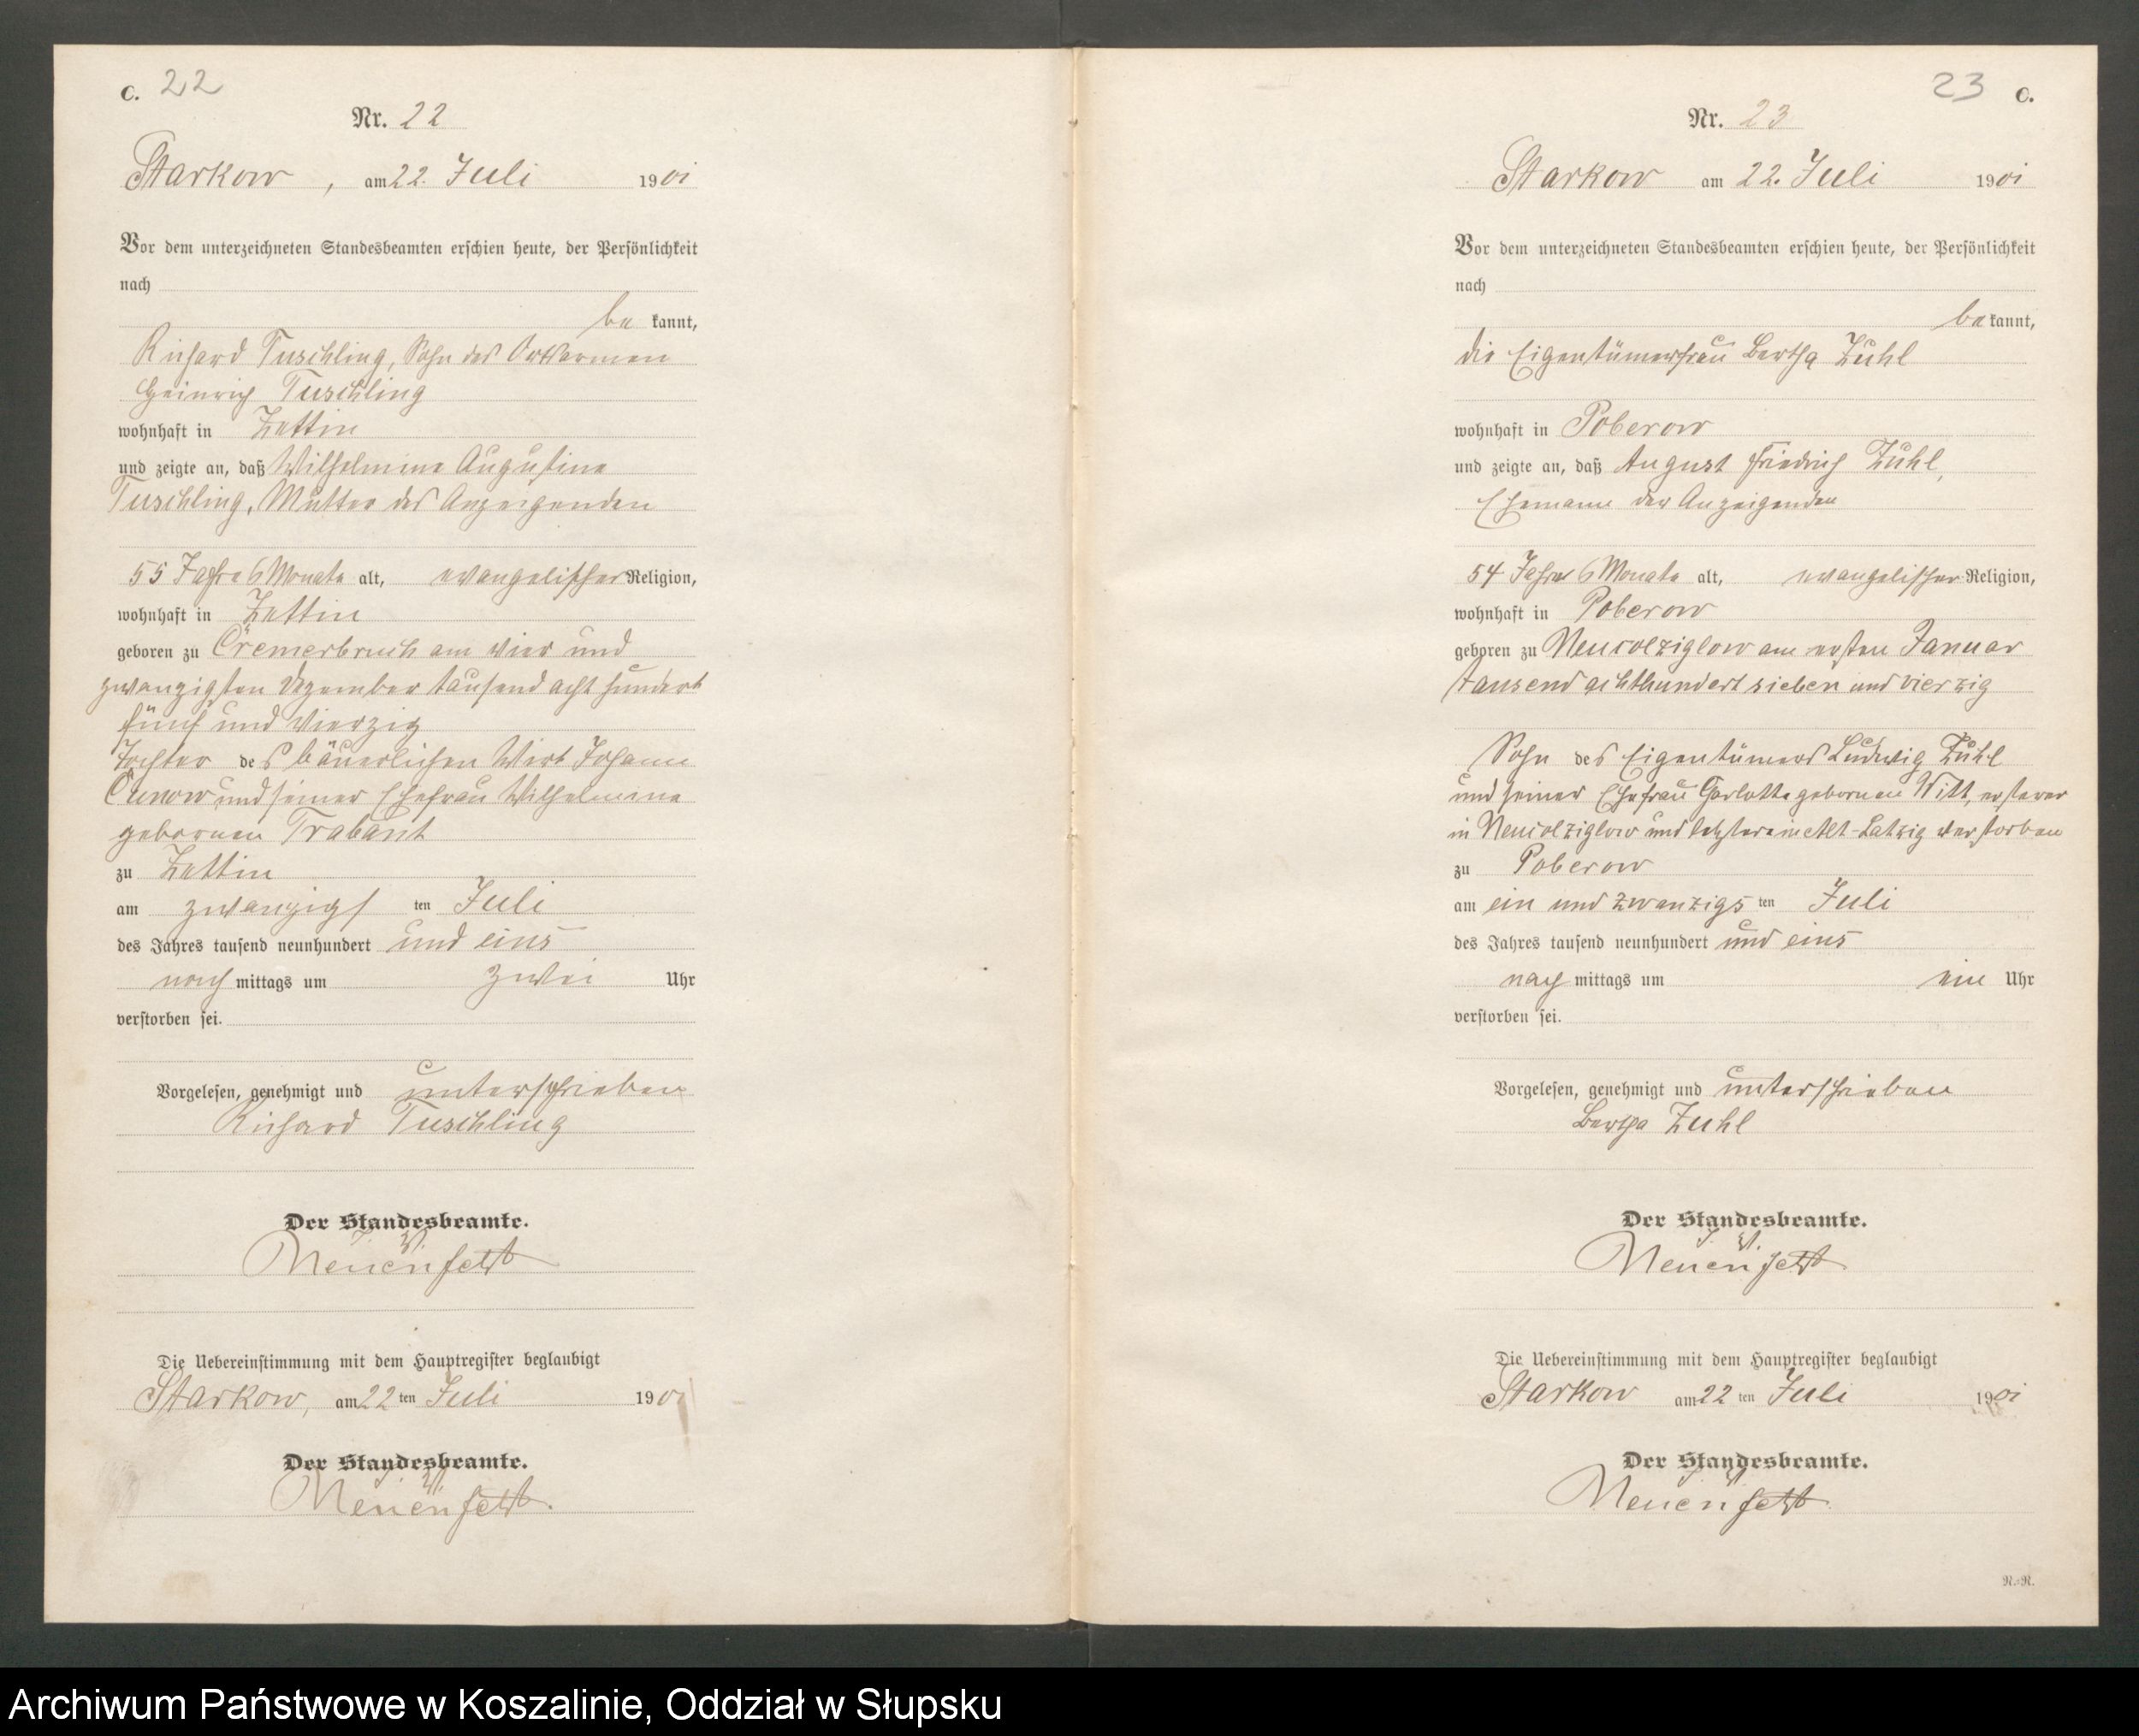 C. 22
Nr. 22
Starkow, am 22. Juli 1901
Vor dem unterzeichneten Standesbeamten erschien heute, der Persönlichkeit
nach
be kannt,
Richard Tuschling, Sohn des Ortsarmen
Heinrich Tuschling
wohnhaft in Zettin
und zeigte an, daß Wilhelmine Augustine
Tuschling, Mutter des Anzeigenden
55 Jahre 6 Monate alt, evangelischer Religion,
wohnhaft in Zettin
geboren zu Cremerbruch am vier und
zwanzigsten Dezember tausend acht hundert
fünf und vierzig
Tochter des bäuerlichen Wirt Johann
Cunow und seiner Ehefrau Wilhelmine
geborenen Trabant
zu Zettin
am zwanzigs ten Juli
des Jahres tausend neunhundert und eins
nach mittags um zwei Uhr
verstorben sei.
Vorgelesen, genehmigt und unterschrieben
Richard Tuschling
Der Standesbeamte.
J. V.
Neuenfeldt
Die Uebereinstimmung mit dem Hauptregister beglaubigt
Starkow, am 22 ten Juli 1901
Der Standesbeamte.
J. V.
Neuenfeldt.
23 C.
Nr. 23
Starkow am 22. Juli 1901
Vor dem unterzeichneten Standesbeamten erschien heute, der Persönlichkeit
nach
be kannt,
die Eigentümerfrau Bertha Zühl
wohnhaft in Poberow
und zeigte an, daß August Friedrich Zühl,
Ehemann der Anzeigenden
54 Jahre 6 Monate alt, evangelischer Religion,
wohnhaft in Poberow
geboren zu Neucolziglow am ersten Januar
tausend achthundert sieben und vierzig
Sohn des Eigentümers Ludwig Zühl
und seiner Ehefrau geborenen Witt, ersterer
in Neucolziglow und letztere in Alt-Latzig verstorben
zu Poberow
am ein und zwanzigs ten Juli
des Jahres tausend neunhundert und eins
nach mittags um ein Uhr
verstorben sei.
Vorgelesen, genehmigt und unterschrieben
Bertha Zuhl
Der Standesbeamte.
J. V.
Neuenfeldt
Die Uebereinstimmung mit dem Hauptregister beglaubigt
Starkow am 22 ten Juli 1901
Der Standesbeamte.
J. V.
Neuenfeldt
N.=N.
Archiwum Państwowe w Koszalinie, Oddział w Słupsku